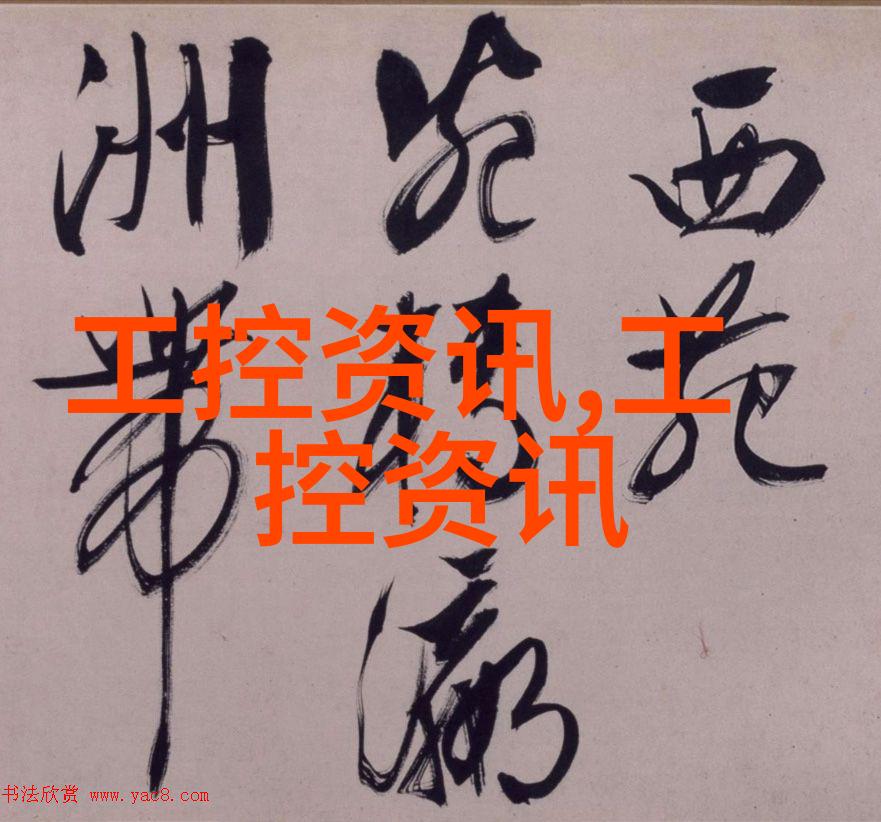 西苑
瀛
洲帶
工控资讯,工
控资讯
书法欣赏 www.yac8.com